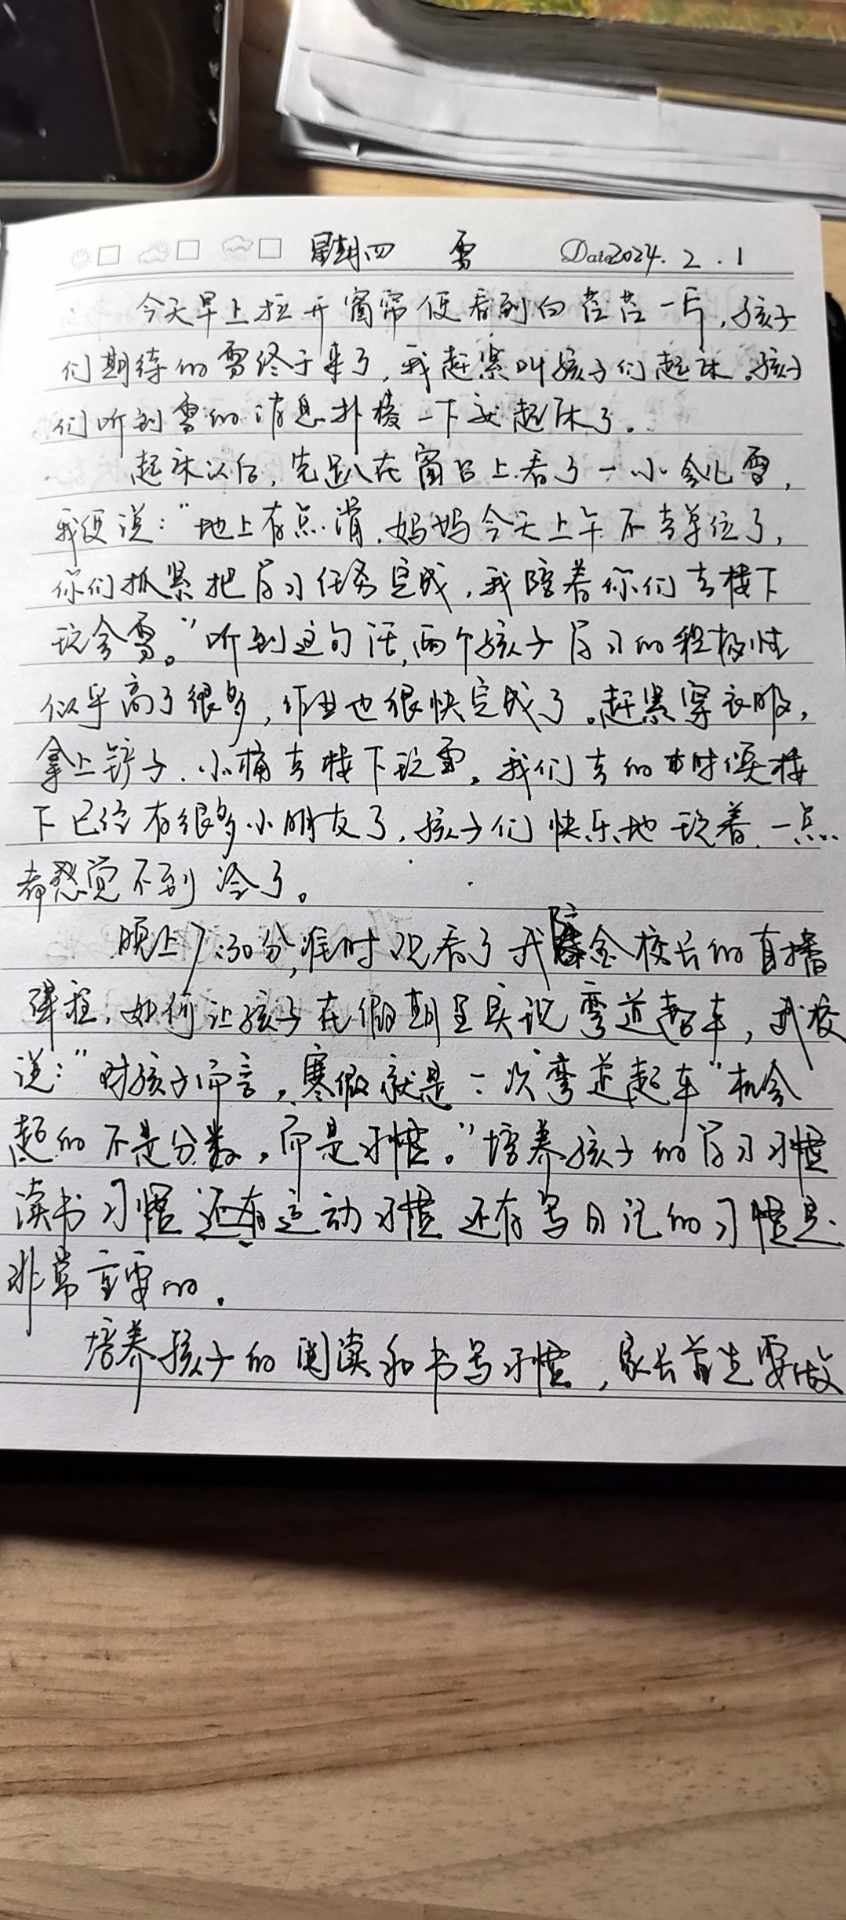 星期四 雪 Date 2024.2.1
今天早上拉开窗帘便看到白茫茫一片,孩子
们期待的雪终于来了,我赶紧叫孩子们起床。孩子
们听到雪的消息扑棱一下就起床了。
起床以后,先趴在窗台上看了一小会儿雪,
我便说:"地上有点滑,妈妈今天上午不去单位了,
你们抓紧把学习任务完成,我陪着你们去楼下
玩会雪。"听到这句话,两个孩子学习的积极性
似乎高了很多,作业也很快完成了。赶紧穿衣服,
拿上铲子、小桶去楼下玩雪。我们去的时候楼
下已经有很多小朋友了,孩子们快乐地玩着,一点
都感觉不到冷了。
晚上7:30分,准时观看了武陈金校长的直播
课程,如何让孩子在假期里实现弯道超车,武校
说:"对孩子而言,寒假就是一次弯道超车"机会
超的不是分数,而是习惯。"培养孩子的学习习惯
读书习惯还有运动习惯还有写日记的习惯是
非常重要的。
培养孩子的阅读和书写习惯,家长首先要做